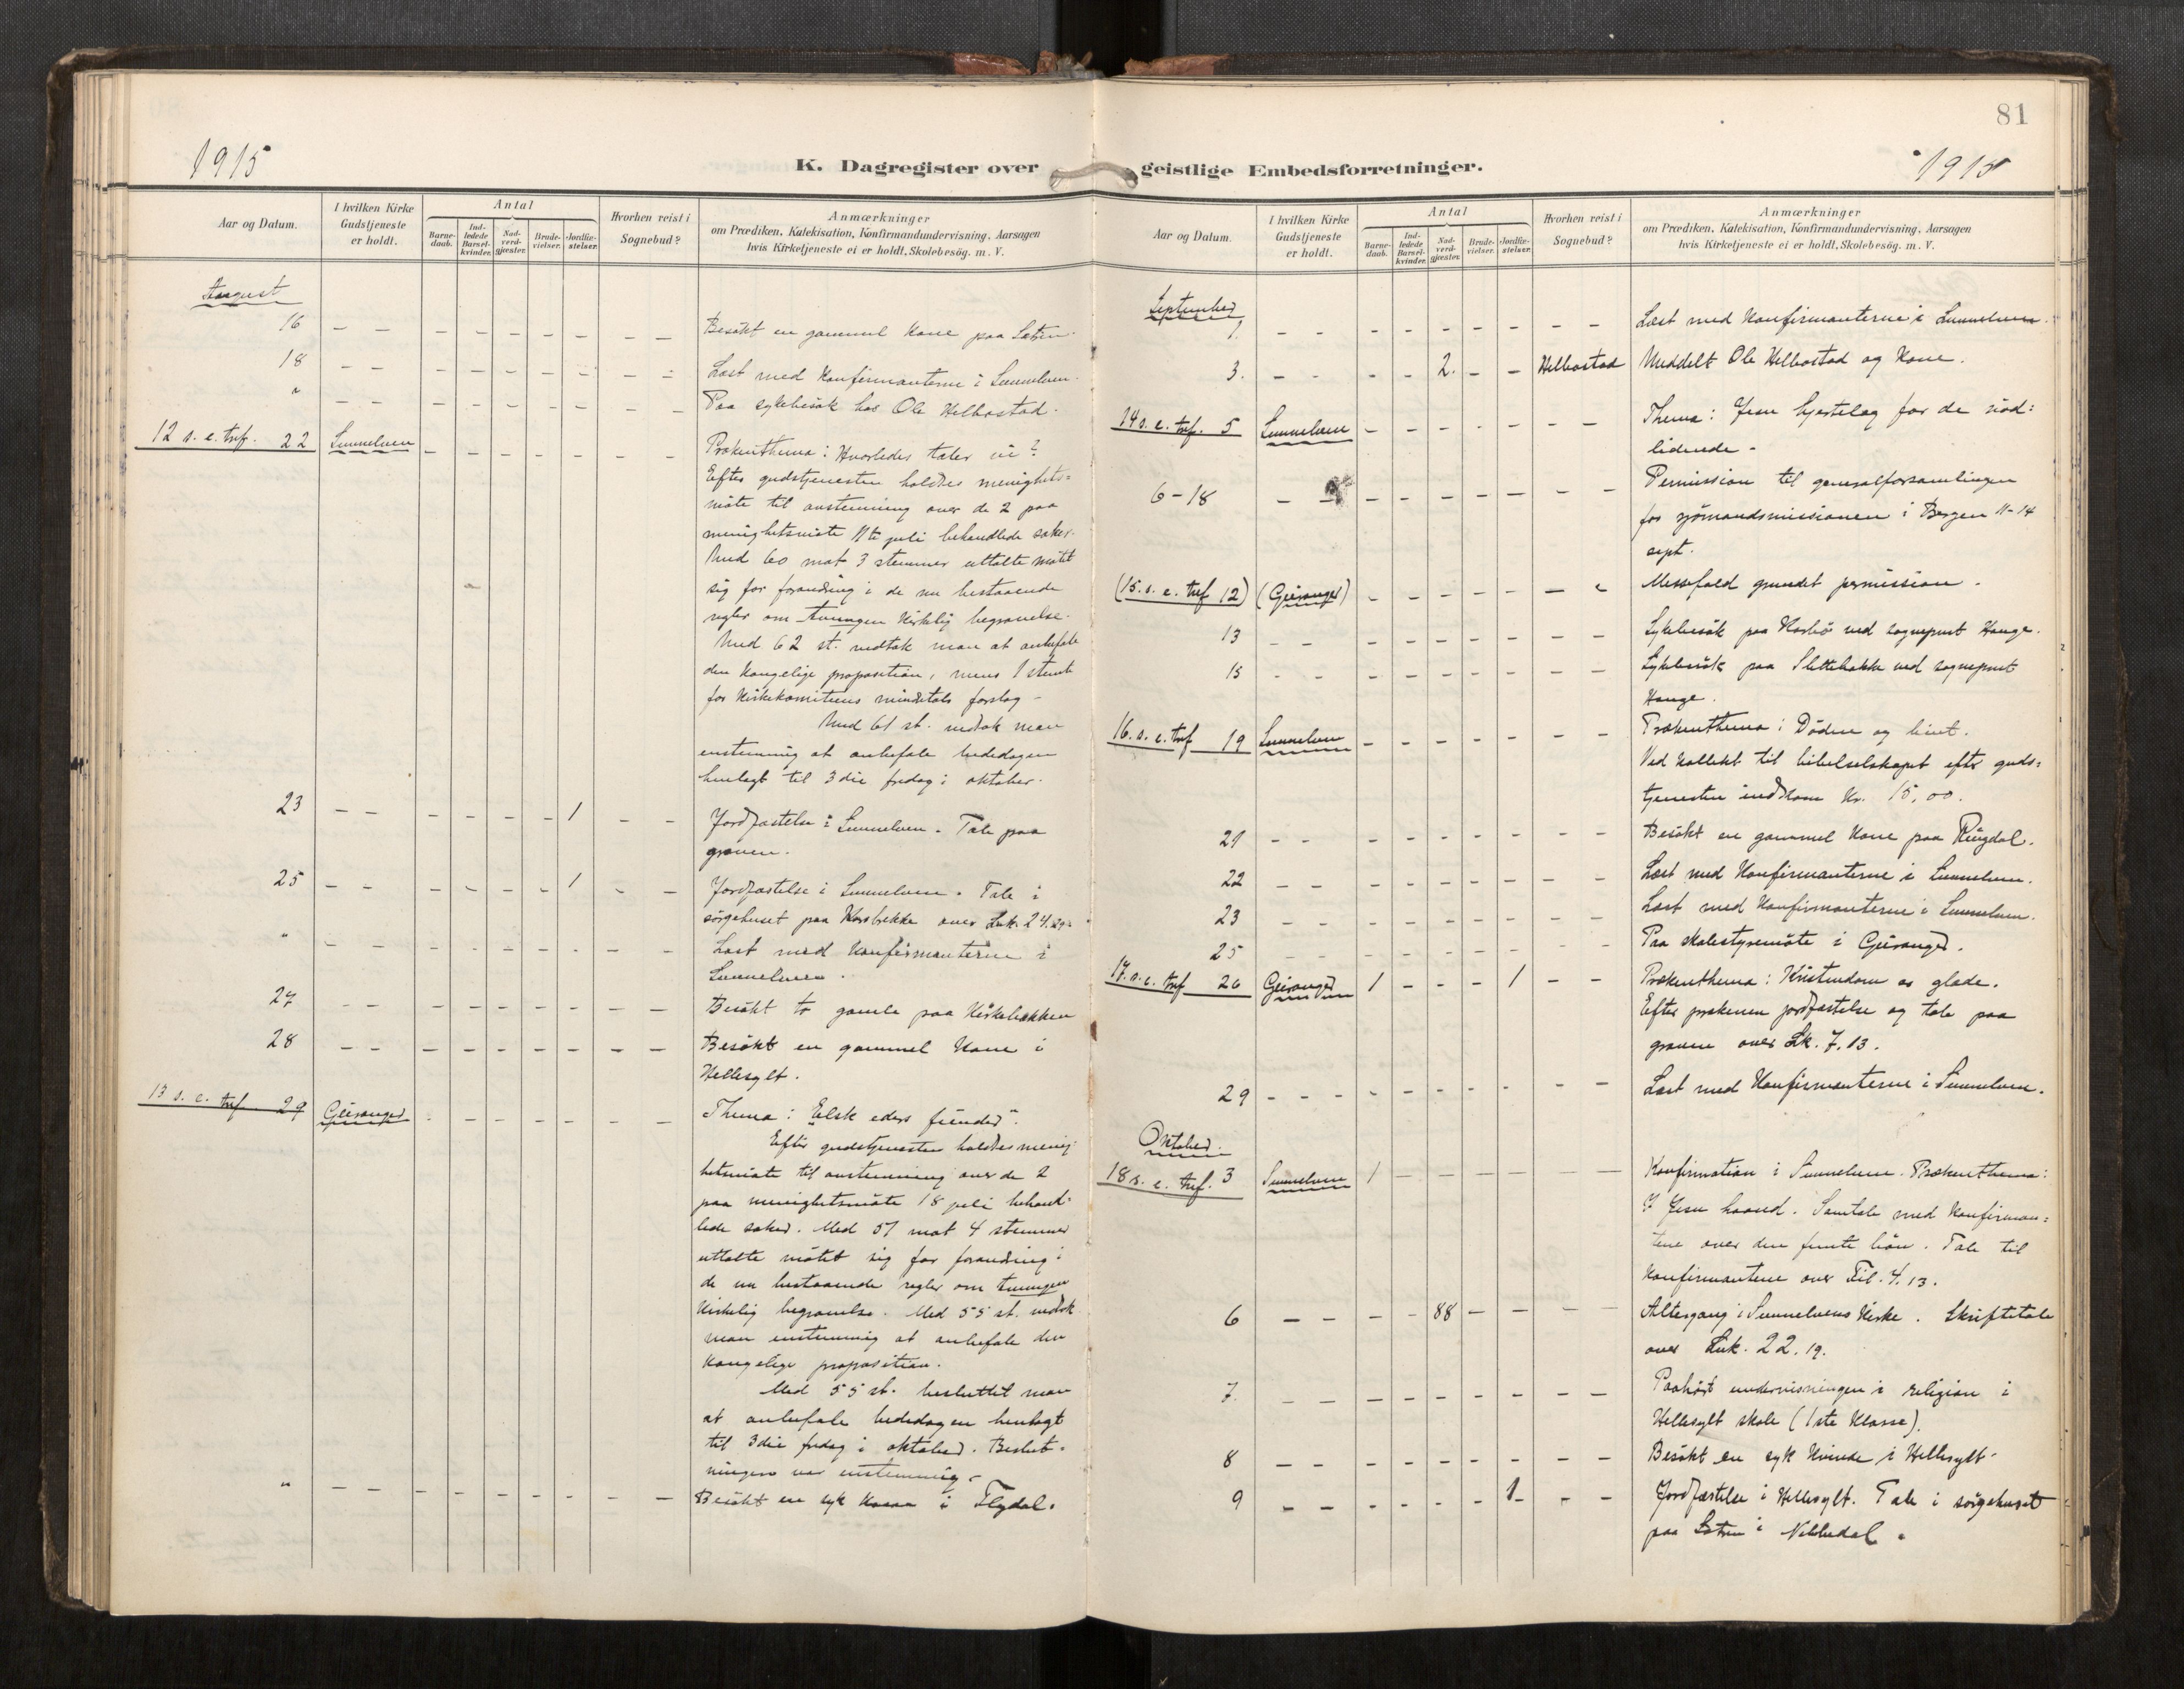 81
1915
1915
K. Dagregister over geistlige Embedsforretninger.
Aar og Datum.
I hvilken Kirke Gudstjeneste er holdt.
Antal
Barnedaab.
Indledede Barselkvinder.
Nadverdgjæster.
Brudevielser.
Jordfæstelser.
Hvorhen reist i Sognebud?
Anmærkninger
om Prædiken, Katekisation, Konfirmandundervisning, Aarsagen
hvis Kirketjeneste ei er holdt, Skolebesög. m. V.
August
16 – – – – – – – – – Besøkt en gammel kone paa Sætren.
18 – – – – – – – – – Læst med konfirmanterne i Sunnelven.
" – – – – – – – – – Paa sykebesøk hos Ole Helbostad.
12 s. e. tref. 22 Sunnelven – – – – – – – Prækenthema: Hvorledes taler vi?
Efter gudstjenesten holdtes menighets=
møte til avstemning over de 2 paa
menighetsmøte 11te juli behandlede saker.
Med 60 mot 3 stemmer uttalte møtet
sig for forandring i de nu bestaaende
regler om tvungen kirkelig begravelse.
Med 62 st. vedtok man at anbefale
den kongelige proposition, mens 1 stemte
for kirkekomiteens mindretals forslag –
Med 61 st. vedtok man
enstemmig at anbefale bededagen
henlagt til 3die fredag i oktober.
23 – – – – – – 1 – – Jordfæstelse i Sunnelven. Tale paa
graven.
25 – – – – – – 1 – – Jordfæstelse i Sunnelven. Tale i
sørgehuset paa Korsbrekke over Luk. 24.29.
" – – – – – – – – – Læst med konfirmanterne i
Sunnelven.
27 – – – – – – – – – Besøkt to gamle paa Kirkebakken
28 – – – – – – – – – Besøkt en gammel kone i
Hellesylt.
13 s. e. tref 29 Geiranger – – – – – – – Thema: "Elsk eders fiender".
Efter gudstjenesten holdtes menig-
hetsmøte til avstemning over de 2
paa menighetsmøte 18 juli behand=
lede saker. Med 57 mot 4 stemmer
uttalte møtet sig for forandring i
de nu bestaaende regler om tvungen
kirkelig begravelse. Med 55 st. vedtok
man enstemmig at anbefale den
kongelige proposition.
Med 55 st. besluttet man
at anbefale bededagen henlagt
til 3die fredag i oktober. Beslut-
ningen var enstemmig.
" – – – – – – – – – Besøkt en syk kone i Flydal.
Aar og Datum.
I hvilken Kirke Gudstjeneste er holdt.
Antal
Barnedaab.
Indledede Barselkvinder.
Nadverdgjæster.
Brudevielser.
Jordfæstelser.
Hvorhen reist i Sognebud?
Anmærkninger
om Prædiken, Katekisation, Konfirmandundervisning, Aarsagen
hvis Kirketjeneste ei er holdt, Skolebesög. m. V.
September
1. – – – – – – – – – Læst med konfirmanterne i Sunnelven.
3. – – – – 2. – – Helbostad Meddelt Ole Helbostad og kone.
14 s. e. tref. 5 Sunnelven – – – – – – – Thema: Jesu hjertelag for de nød=
lidende –
6–18 – – – – – – – – – Permission til generalforsamlingen
for sjömandsmissionen i Bergen 11–14
sept.
(15. s. e. tref 12) (Geiranger) – – – – – – – Messefald grundet permission.
13 – – – – – – – – – Sykebesøk paa Korsbö ved sogneprest Hauge.
15 – – – – – – – – – Sykebesøk paa Slettebakk ved sogneprest
Hauge.
16. s. e. tref 19 Sunnelven – – – – – – – Prækenthema: Döden og livet.
Ved kollekt til bibelselskapet efter guds=
tjenesten indkom Kr. 15,00.
21 – – – – – – – – – Besøkt en gammel kone paa Ringdal.
22 – – – – – – – – – Læst med konfirmanterne i Sunnelven.
23 – – – – – – – – – Læst med konfirmanterne i Sunnelven.
25 – – – – – – – – – Paa skolestyremøte i Geiranger.
17. s. e. tref 26 Geiranger 1 – – – 1 – – Prækenthema: Kristendom os glæde.
Efter prækenen jordfæstelse og tale paa
graven over Lk. 7.13.
29 – – – – – – – – – Læst med konfirmanterne i Sunnelven.
Oktober.
18 s. e. tref. 3 Sunnelven 1 – – – – – – Konfirmation i Sunnelven. Prækenthema:
I Jesu haand. Samtale med konfirman=
tene over den femte bön. Tale til
konfirmantene over Fil. 4.13.
6 – – – – 88 – – – – Altergang i Sunnelvens kirke. Skriftetale
over Luk. 22.19.
7. – – – – – – – – – Paahørt undervisningen i religion i
Hellesylt skole (1ste klasse).
8 – – – – – – – – – Besøkt en syk kvinde i Hellesylt.
9 – – – – – – 1 – – Jordfæstelse i Hellesylt. Tale i sørgehuset
paa Sætren i Nibbedal.